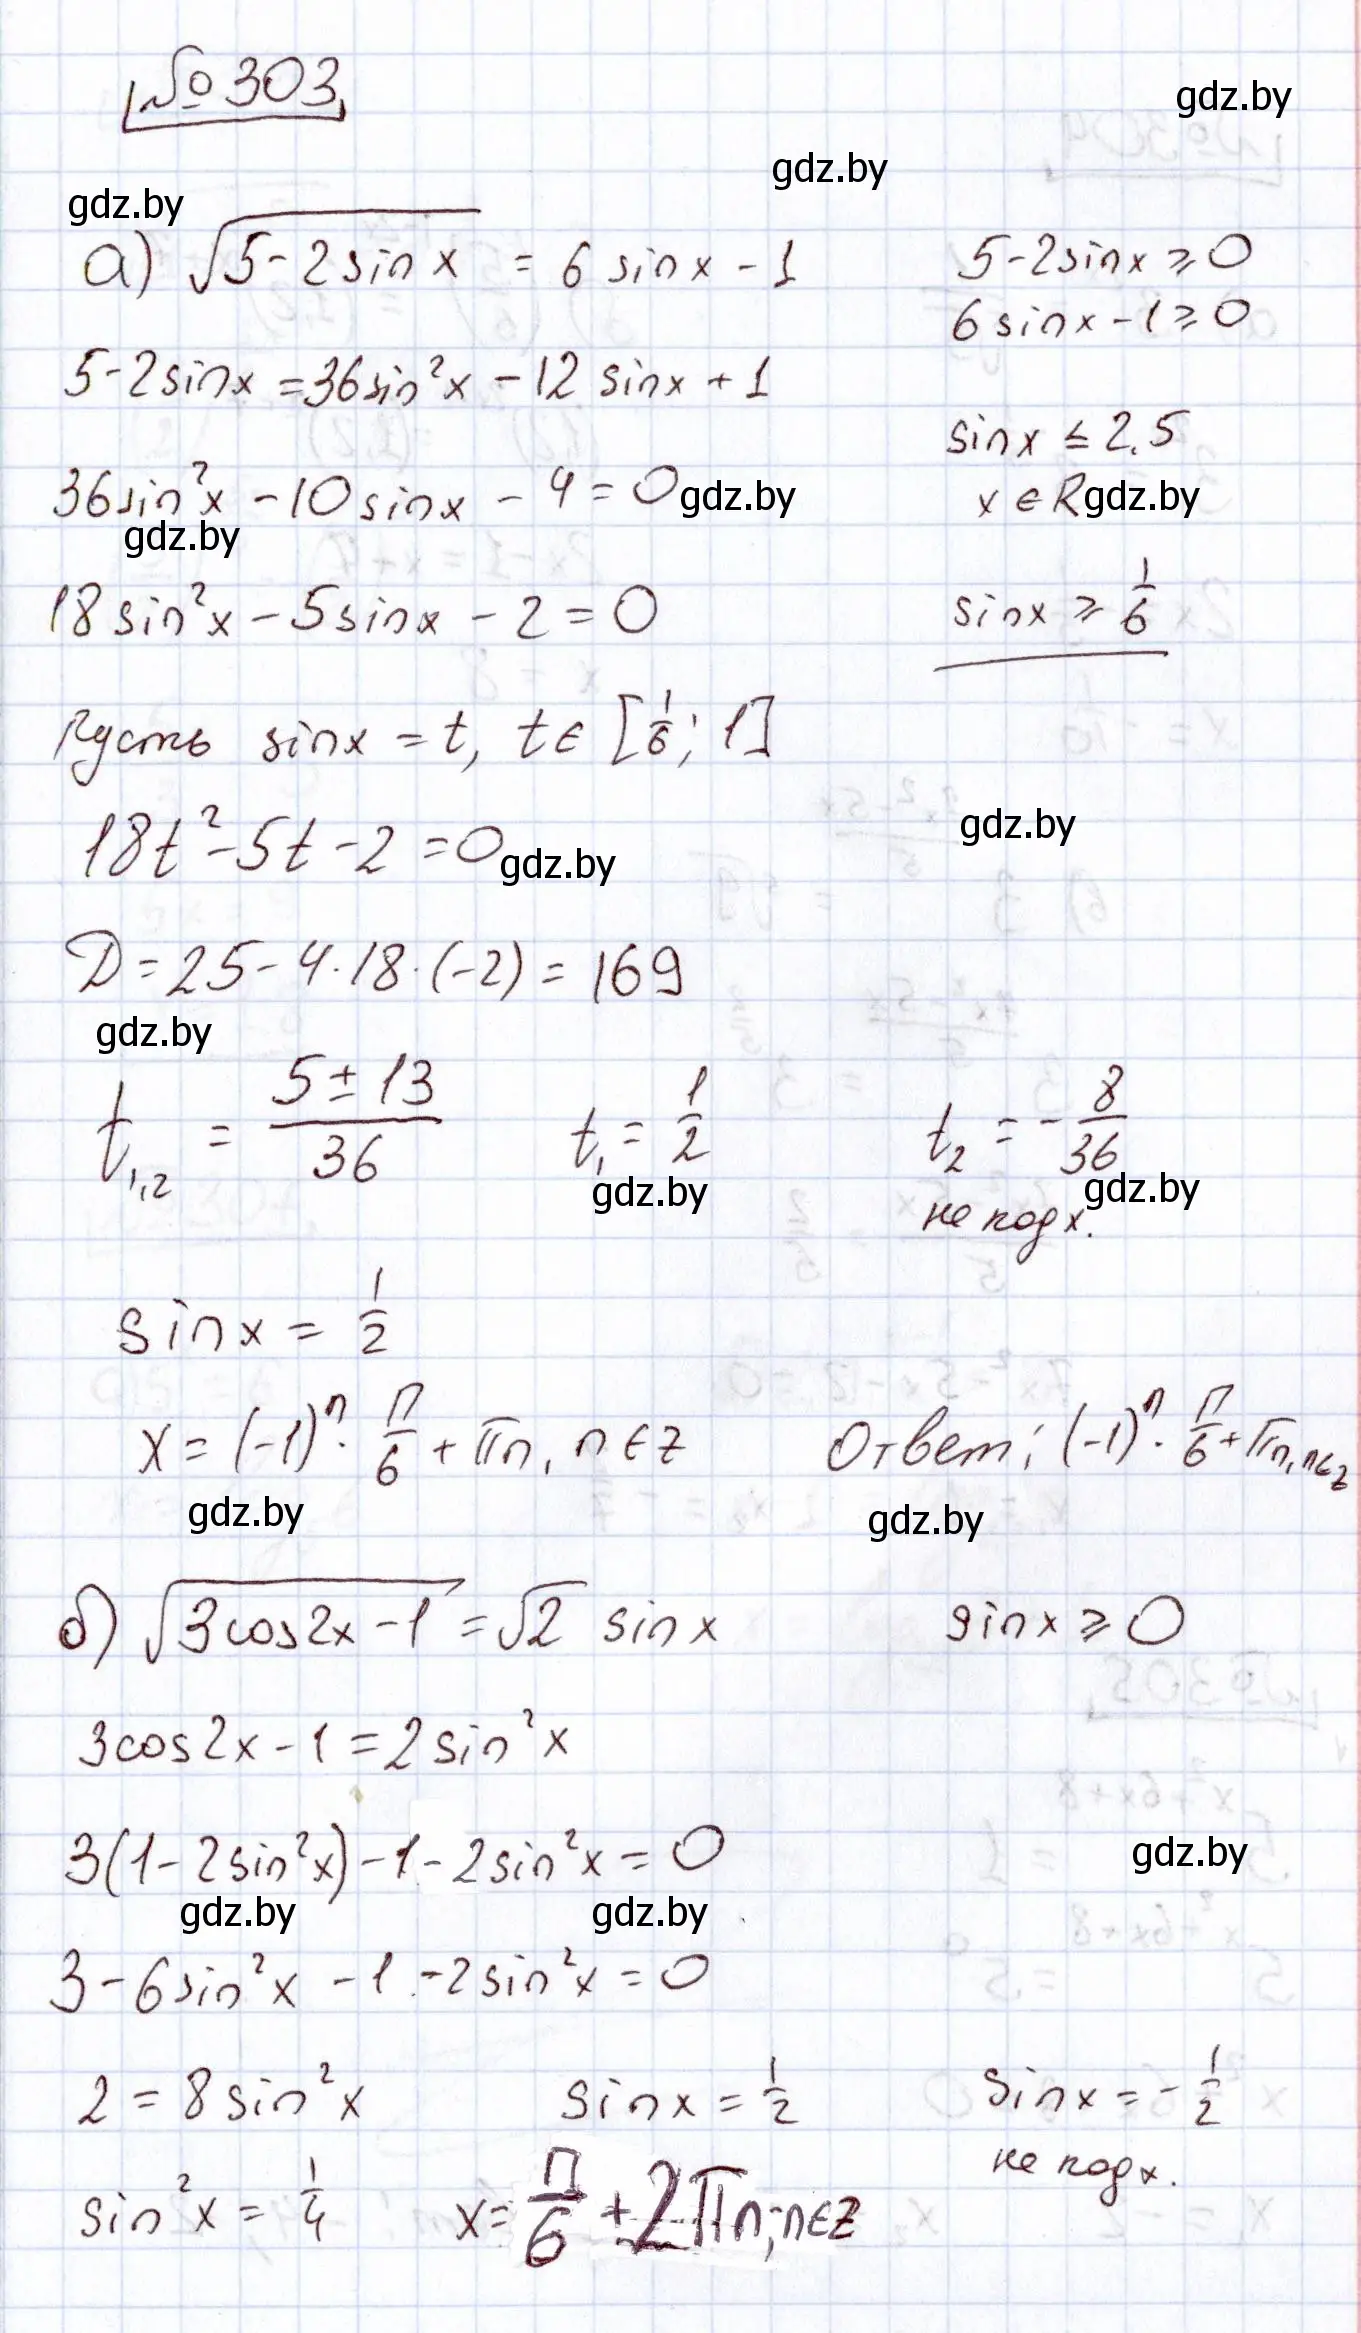 №303
gdz.by
gdz.by
gdz.by
а) √(5-2sinx) = 6sinx - 1
5-2sinx ≥ 0
6sinx-1 ≥ 0
5-2sinx = 36sin²x - 12sinx + 1
sinx ≤ 2,5
36sin²x - 10sinx - 4 = 0
gdz.by
x ∈ R
gdz.by
gdz.by
18sin²x - 5sinx - 2 = 0
sinx ≥ 1/6
Пусть sinx = t, t ∈ [1/6; 1]
18t² - 5t - 2 = 0
gdz.by
gdz.by
D = 25 - 4·18·(-2) = 169
gdz.by
t₁,₂ = (5 ± 13)/36
t₁ = 1/2
t₂ = -8/36
gdz.by
gdz.by
не подх.
sinx = 1/2
x = (-1)ⁿ · П/6 + πn, n ∈ z
Ответ: (-1)ⁿ · П/6 + πn, n ∈ z
gdz.by
gdz.by
б) √(3cos2x - 1) = √2 sinx
sinx ≥ 0
3cos2x - 1 = 2sin²x
3(1 - 2sin²x) - 1 - 2sin²x = 0
gdz.by
gdz.by
gdz.by
3 - 6sin²x - 1 - 2sin²x = 0
2 = 8sin²x
sinx = 1/2
sinx = -1/2
не подх.
sin²x = 1/4
x = П/6 + 2πn, n ∈ Z